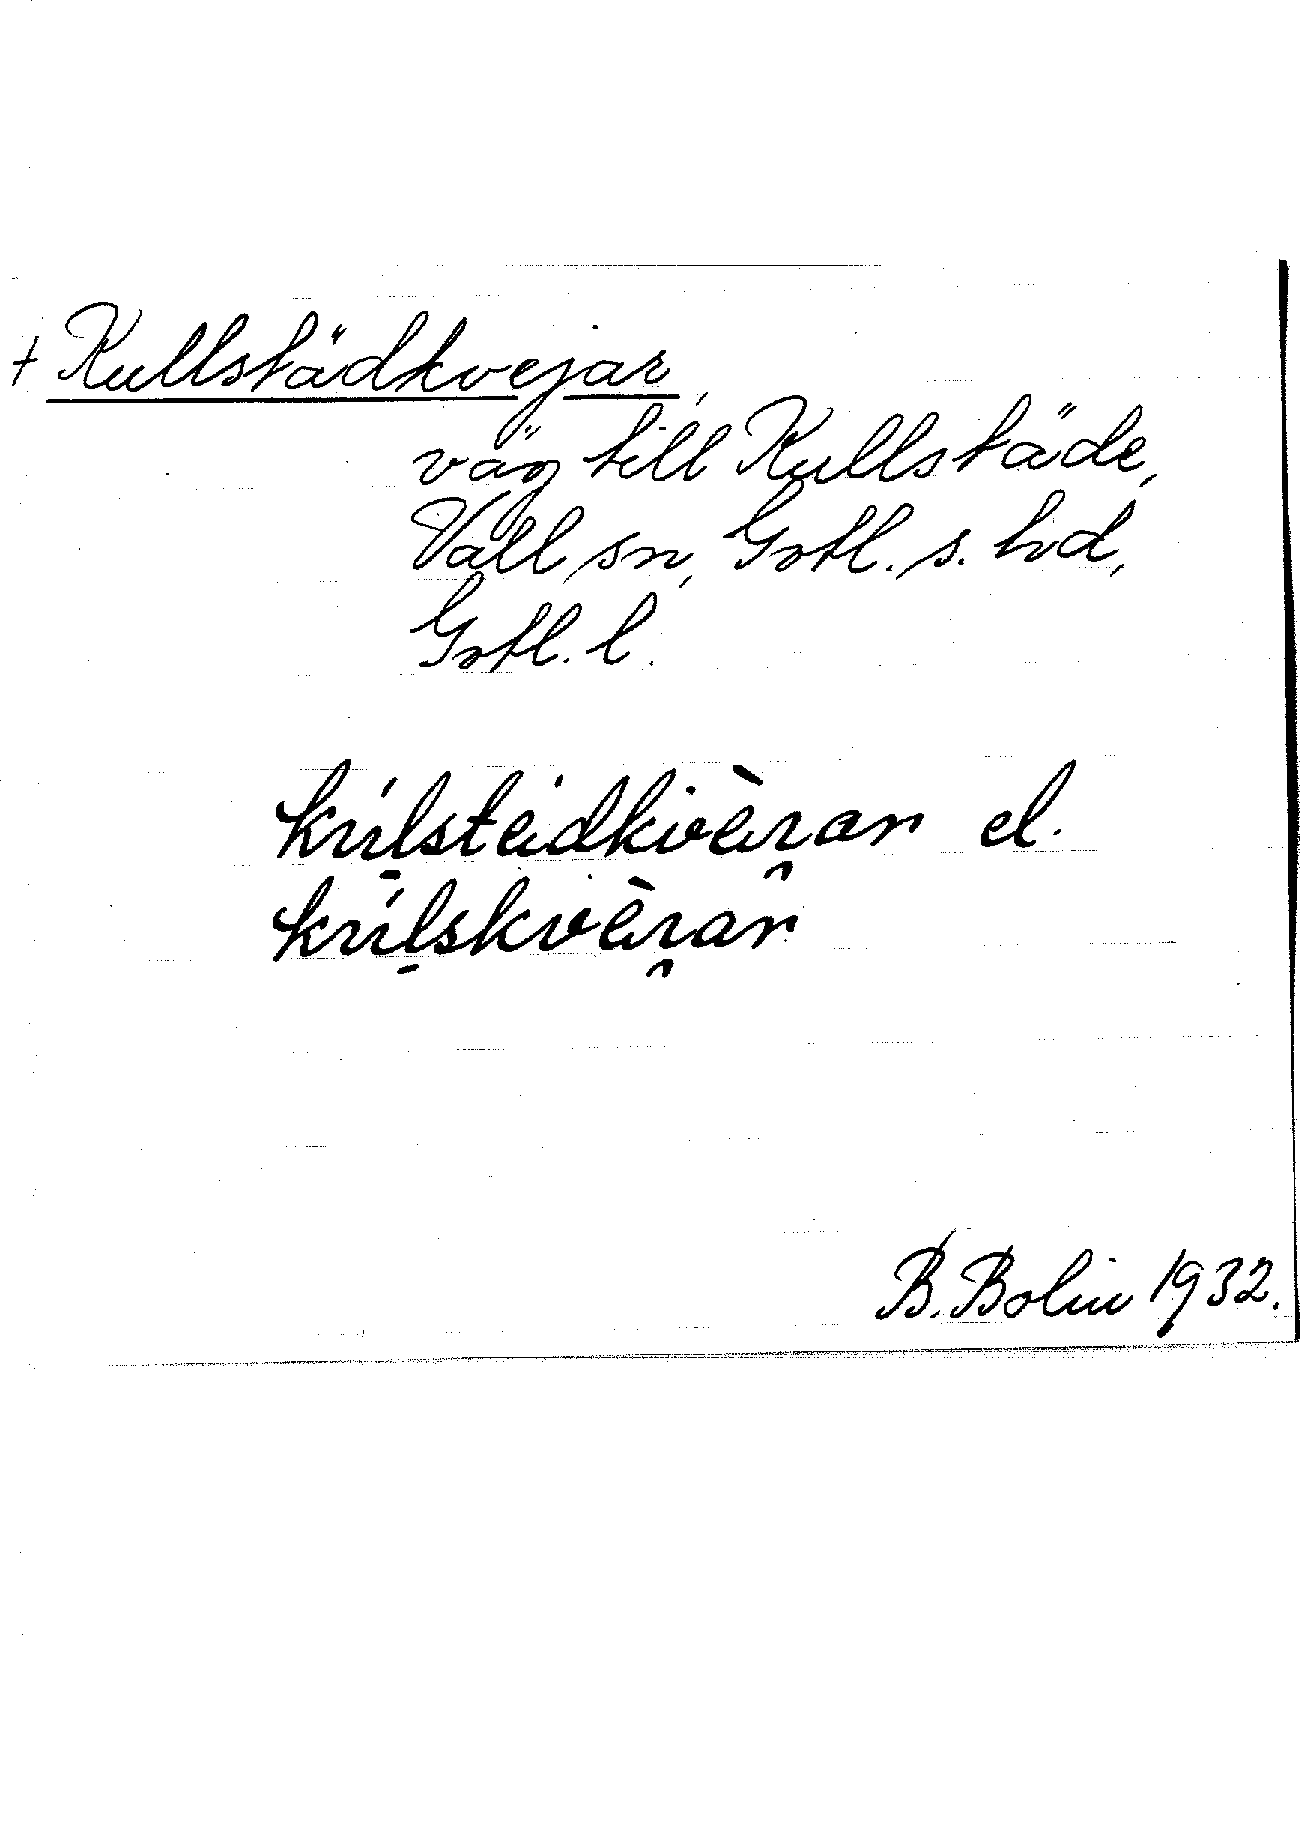 + Kullstädkvejar,
väg till Kullstäde,
Vall sn, Gotl. s. hd,
Gotl. l.
el.
B. Bolin 1932.